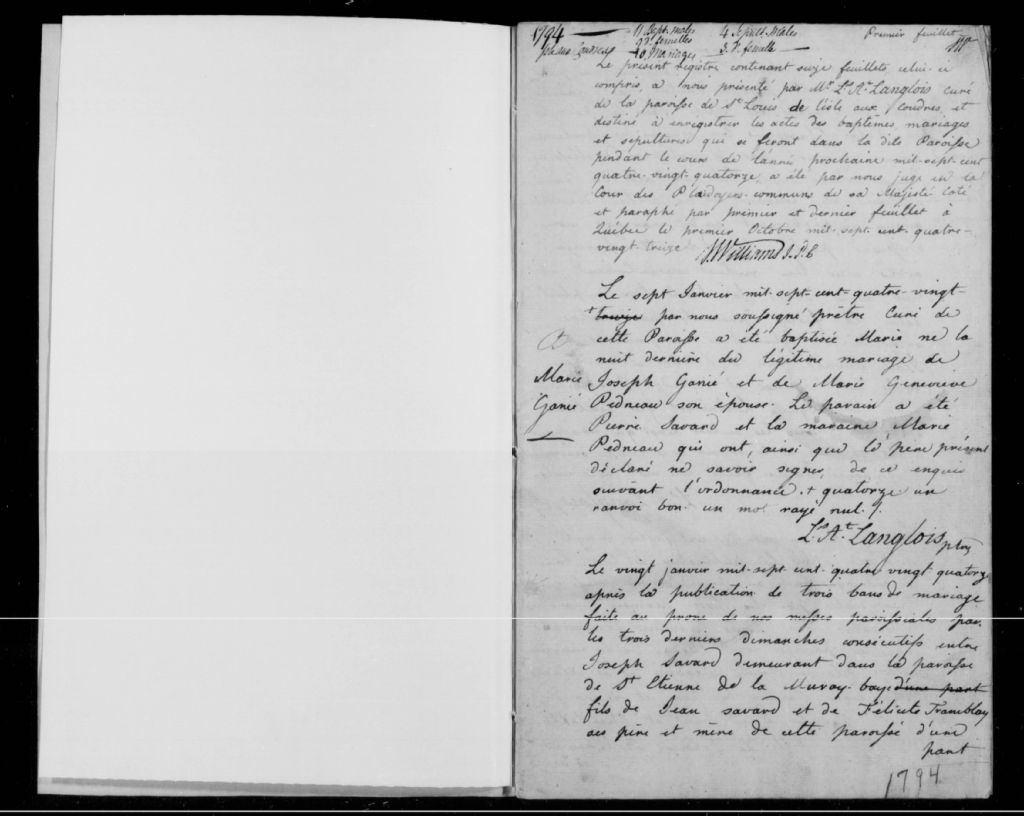 1794 — 11 Bapt. mâles 4 Sepult. Mâles Premier feuillet
Isle aux Coudres 9 d° femelles 3 d° femelle
0 Mariages
Le present registre contenant seize feuillets celui-ci
compris, a nous présenté par Mr. Ls. At. Langlois curé
de la paroisse de St. Louis de l'isle aux Coudres, et
destiné à enregistrer les actes des baptêmes, mariages
et sepultures qui se feront dans la dite Paroisse
pendant le cours de l'année prochaine mil-sept-cent
quatre-vingt-quatorze, a été par nous juge en la
Cour des Plaidoyers communs de sa Majesté Coté
et paraphé par premier et dernier feuillet à
Québec le premier Octobre mil-sept-cent-quatre-
vingt treize J. Williams J.P.C
Le sept Janvier mil-sept-cent-quatre-vingt-
+ treize par nous soussigné prêtre Curé de
cette Paroisse a été baptisée Marie ne la
nuit dernière du légitime mariage de
Marie Joseph Ganié et de Marie Geneviève
Ganié Pedneau son épouse. Le parain a été
Pierre Savard et la maraine Marie
Pedneau qui ont, ainsi que le pere présent
déclaré ne savoir signer de ce enquis
suivant l'ordonnance. + quatorze un
ranvoi bon. un mot rayé nul ./.
Ls. At. Langlois ptre
Le vingt janvier mil-sept-cent-quatre vingt quatorze
après la publication de trois bans de mariage
faite au prone de nos messes paroissiales par
les trois derniers dimanches consécutifs entre
Joseph Savard demeurant dans la paroisse
de St Etienne de la Muray-baye d'une part
fils de Jean savard et de Félicité Tramblay
ses père et mère de cette paroisse d'une
part
1794